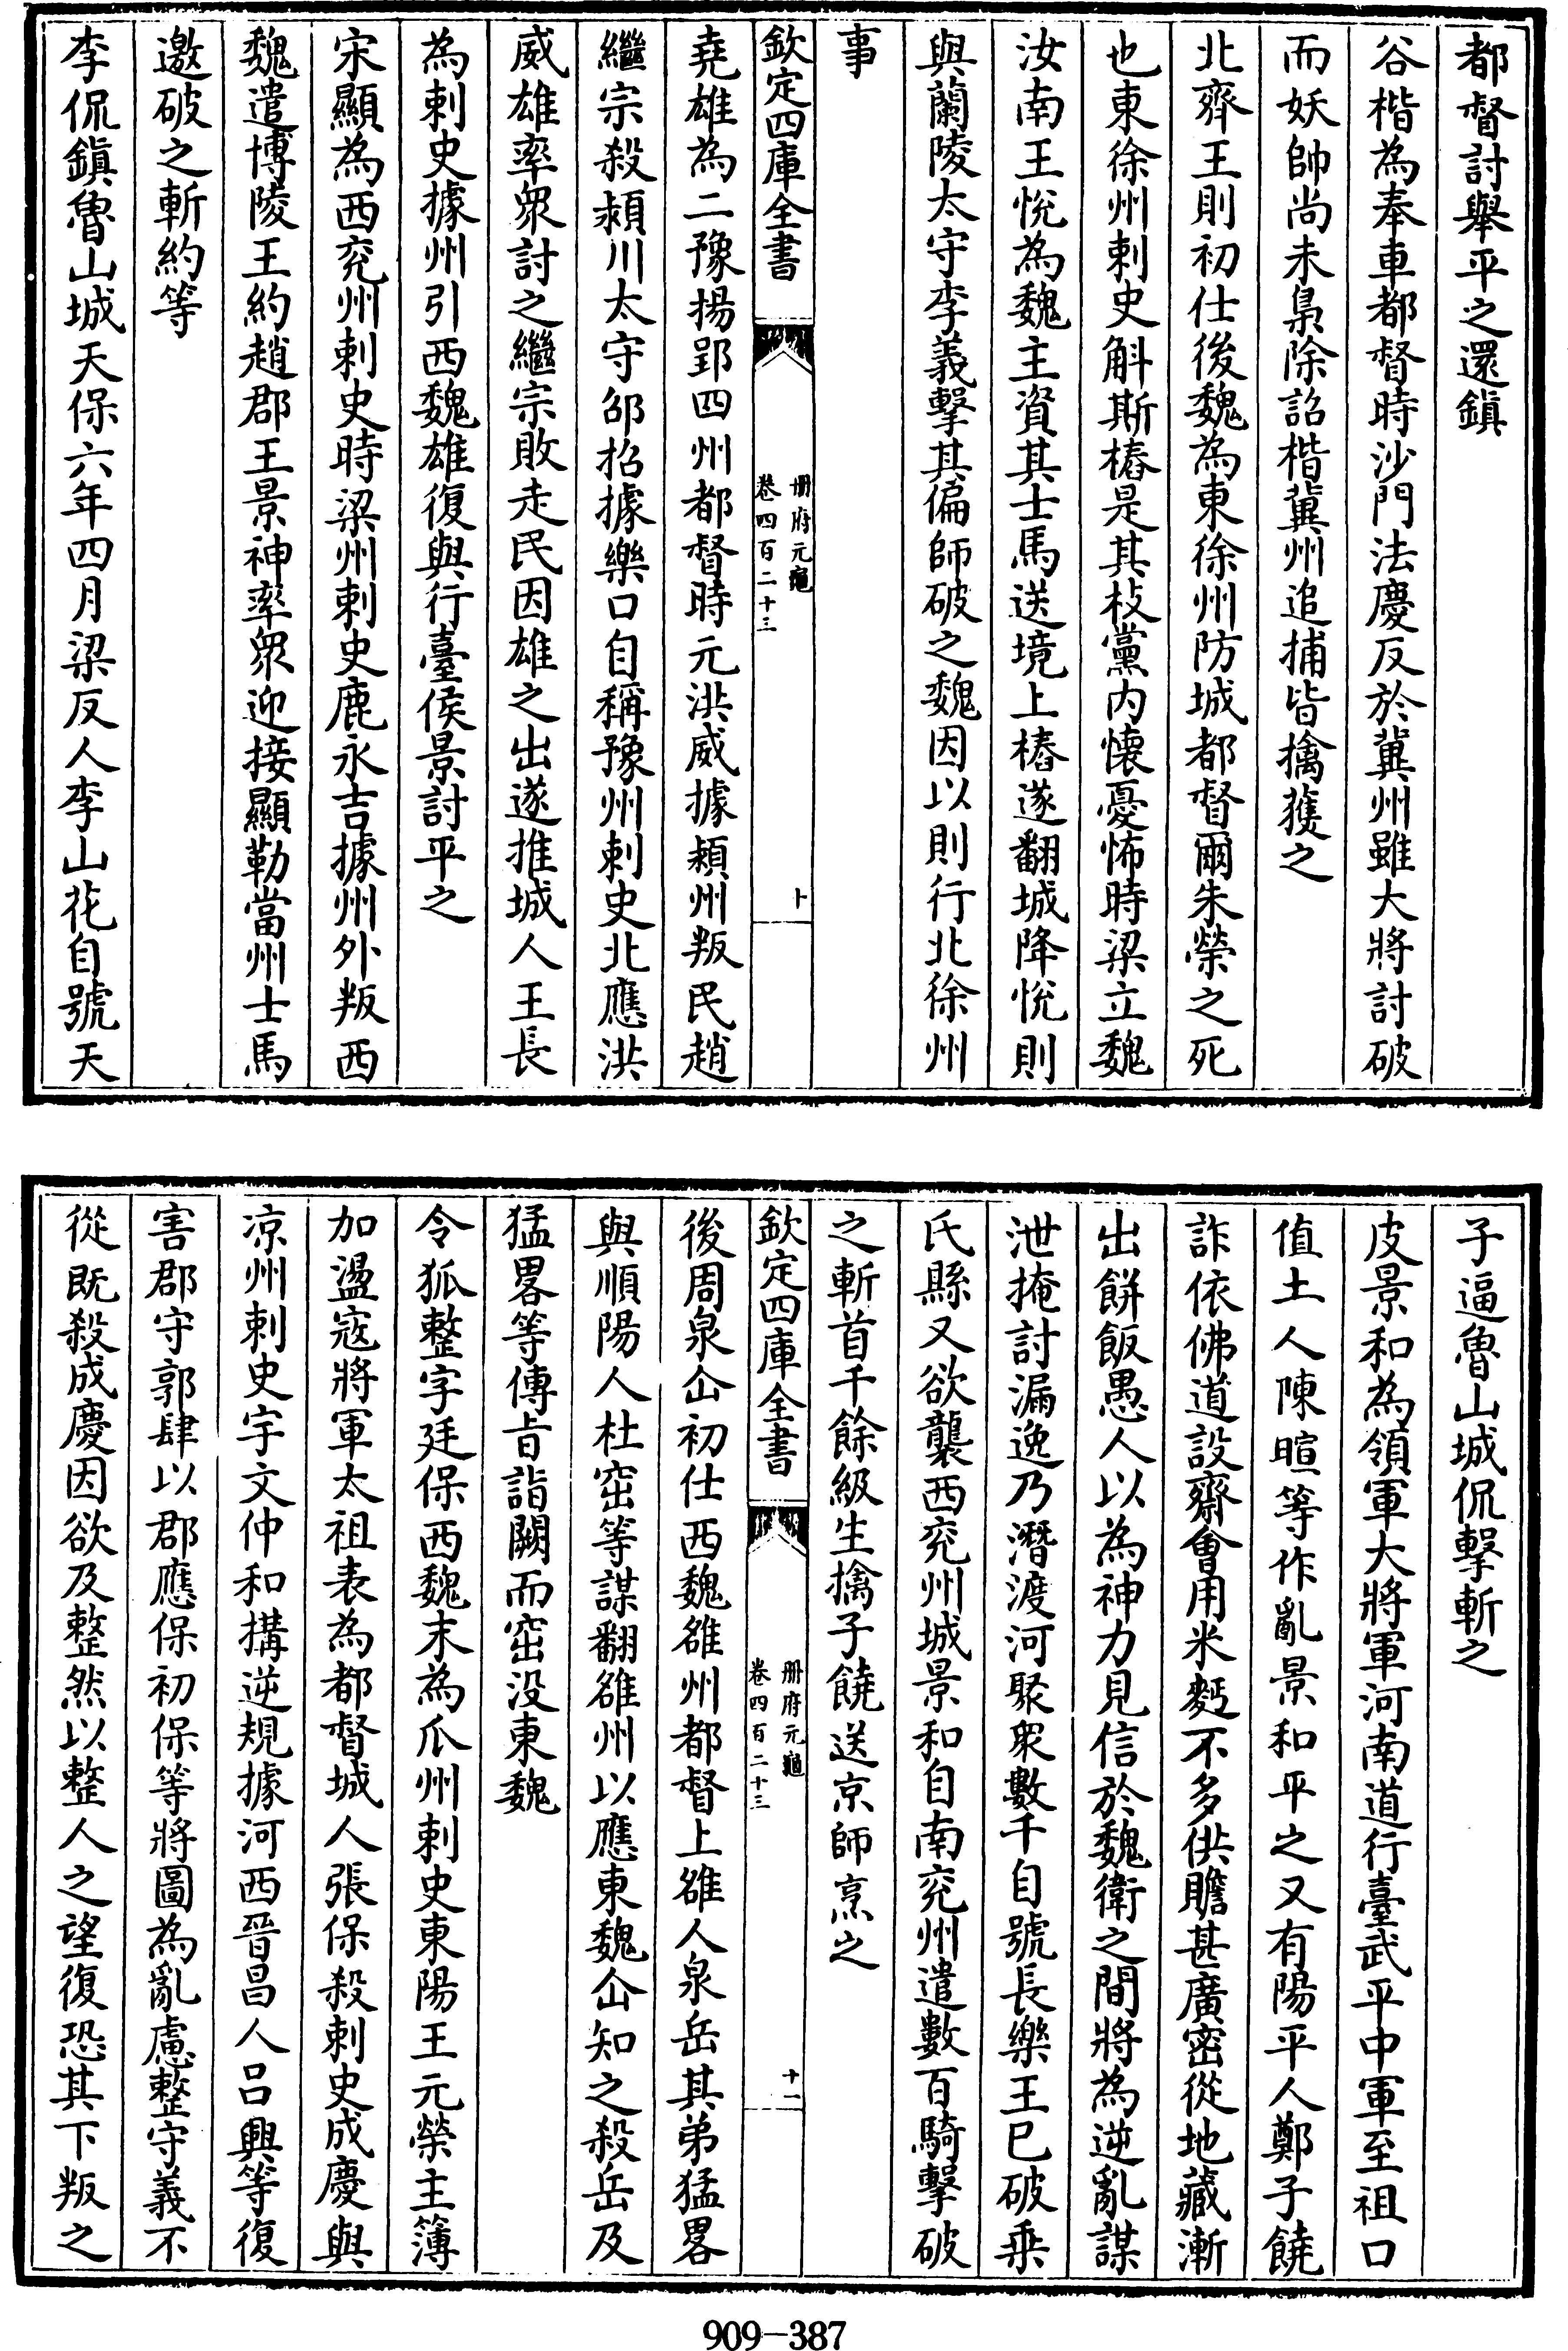 都督討舉平之還鎮
谷楷為奉車都督時沙門法慶反於冀州雖大將討破
而妖帥尚未梟除詔楷冀州追捕皆擒獲之
北齊王則初仕後魏為東徐州防城都督爾朱榮之死
也東徐州刺史斛斯椿是其枝黨内懷憂怖時梁立魏
汝南王悅為魏主資其士馬送境上椿遂翻城降悅則
與蘭陵太守李義擊其偏師破之魏因以則行北徐州
事
欽定四庫全書
冊府元龜
卷四百二十三
堯雄為二豫揚郢四州都督時元洪威據潁州叛民趙
繼宗殺潁川太守邵招據樂口自稱豫州刺史北應洪
威雄率眾討之繼宗敗走民因雄之出遂推城人王長
為刺史據州引西魏雄復與行臺侯景討平之
宋顯為西兖州刺史時梁州刺史鹿永吉據州外叛西
魏遣博陵王約趙郡王景神率眾迎接顯勒當州士馬
邀破之斬約等
李侃鎮魯山城天保六年四月梁反人李山花自號天
子逼魯山城侃擊斬之
皮景和為領軍大將軍河南道行臺武平中軍至祖口
值土人陳暄等作亂景和平之又有陽平人鄭子饒
詐依佛道設齋會用米麪不多供贍甚廣密從地藏漸
出餅飯愚人以為神力見信於魏衛之間將為逆亂謀
泄掩討漏逸乃潛渡河聚衆數千自號長樂王已破乘
氏縣又欲襲西兖州城景和自南兖州遣數百騎擊破
之斬首千餘級生擒子饒送京師烹之
欽定四庫全書
冊府元龜
卷四百二十三
十一
後周泉仚初仕西魏雒州都督上雒人泉岳其弟猛畧
與順陽人杜窋等謀翻雒州以應東魏仚知之殺岳及
猛畧等傳首詣闕而窋没東魏
令狐整字廷保西魏末為瓜州刺史東陽王元榮主簿
加盪寇將軍太祖表為都督城人張保殺刺史成慶與
凉州刺史宇文仲和搆逆規據河西晉昌人吕興等復
害郡守郭肆以郡應保初保等將圖為亂慮整守義不
從既殺成慶因欲及整然以整人之望復恐其下叛之
909-387